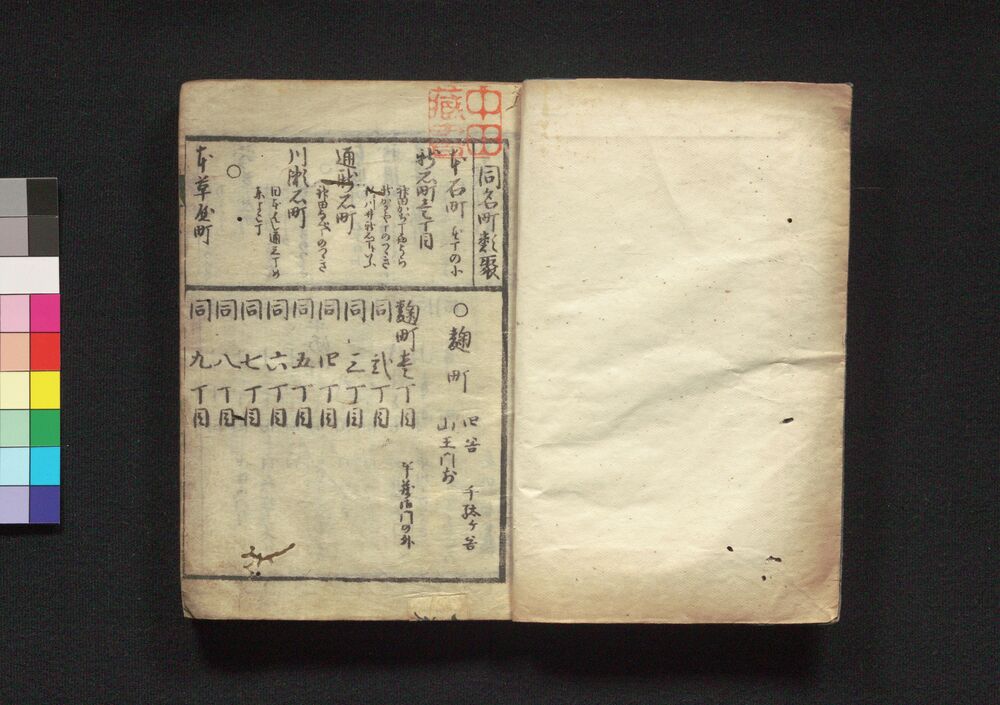 中田
蔵書
同名町類聚
本石町
新石町壱丁目
通新石町
川瀬石町
○
本草屋町
○麹町
四谷
千駄ヶ谷
山王門前
麹町壱丁目
半蔵御門の外
同弐丁目
同三丁目
同四丁目
同五丁目
同六丁目
同七丁目
同八丁目
同九丁目